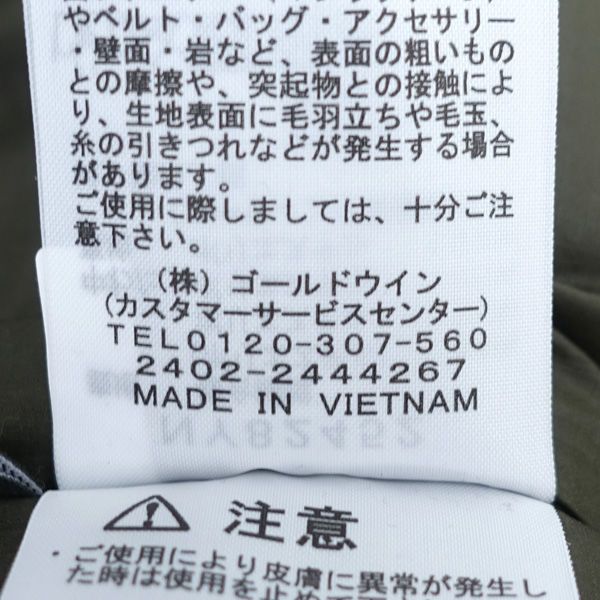 やベルト・バッグ・アクセサリー
・壁面・岩など、表面の粗いもの
との摩擦や、突起物との接触によ
り、生地表面に毛羽立ちや毛玉、
糸の引きつれなどが発生する場合
があります。
ご使用に際しましては、十分ご注
意下さい。
(株) ゴールドウイン
(カスタマーサービスセンター)
TEL0120-307-560
2402-2444267
MADE IN VIETNAM
NY82452
注意
・ご使用により皮膚に異常が発生し
た時は使用を止めて